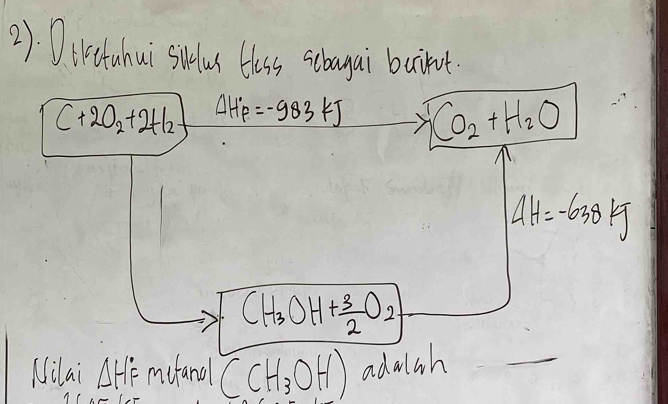 2). Diketahui siklus Hess sebagai berikut.
C+2O₂+2H₂ ΔH°F=-983 kJ CO₂ + H₂O
ΔH=-638 kJ
CH₃OH+3/2 O₂
Nilai ΔH°F metanol (CH₃OH) adalah